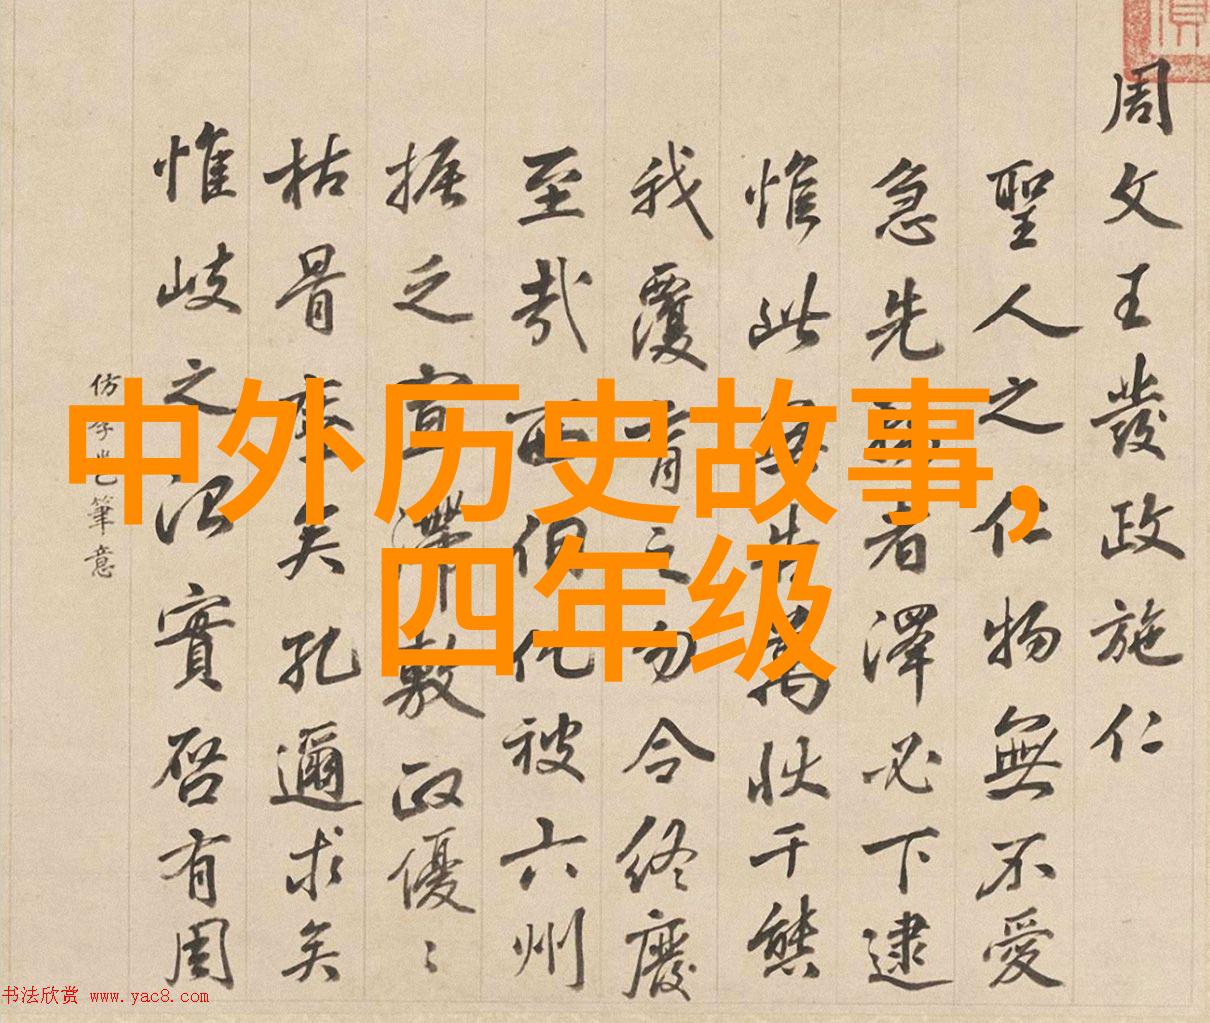 中外历史故事,
四年级
周文王發政施仁
聖人之仁物無不愛
急先者澤必下逮
惟此萬狀千態
我覆育之勿令終廢
至哉西伯化被六州
振之宣滯敷政優〻
枯骨矣孔邇求矣
惟岐之治實啓有周
仿筆意
书法欣赏 www.yac8.com